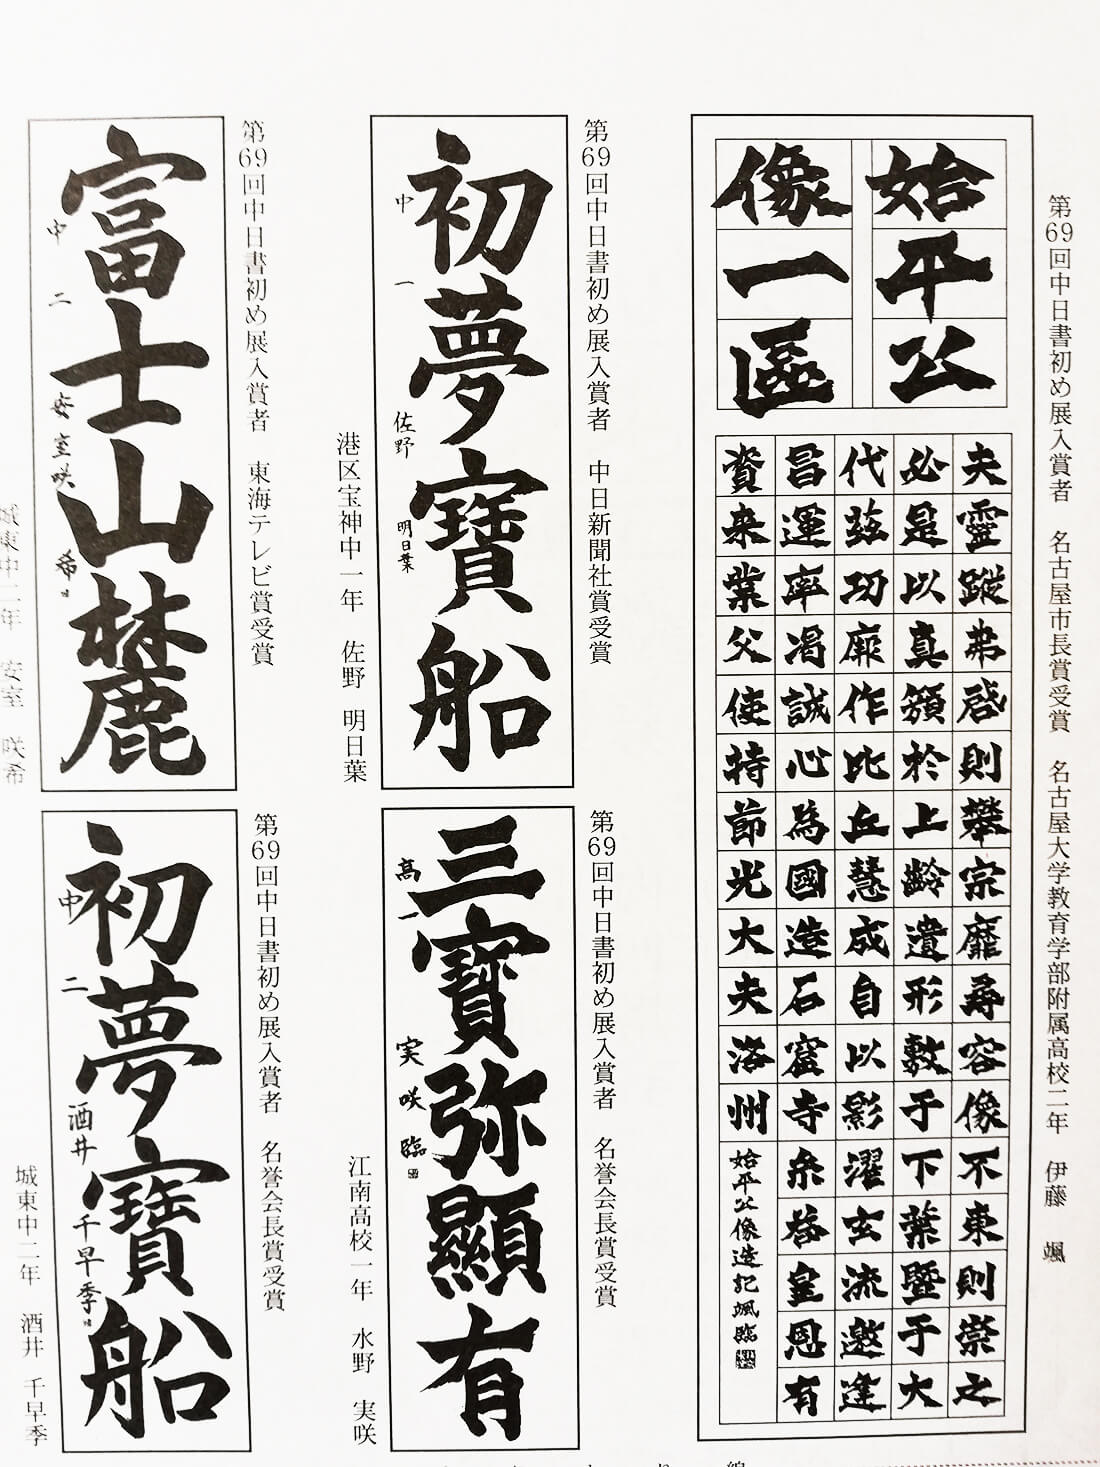 第69回中日書初め展入賞者 名古屋市長賞受賞 名古屋大学教育学部附属高校二年 伊藤 颯
始平公
像一區
夫靈蹤弗啓則攀宗靡尋容像不東則崇之
必是以真顏於上齡遺形敷于下葉暨于大
代茲功厥作比丘慧成自以影濯玄流邀逢
昌運率渴誠心為國造石窟寺糸荅皇恩有
資来業父使持節光大夫洛州
始平公像造記颯臨
第69回中日書初め展入賞者 中日新聞社賞受賞
港区宝神中一年 佐野 明日葉
初夢寶船
中一 佐野 明日葉
第69回中日書初め展入賞者 名誉会長賞受賞
江南高校一年 水野 実咲
三寶弥顯有
高一 実咲臨
第69回中日書初め展入賞者 東海テレビ賞受賞
富士山麓
中二 安室咲希
城東中二年 安室 咲希
第69回中日書初め展入賞者 名誉会長賞受賞
初夢寶船
中二 酒井千早季
城東中二年 酒井 千早季